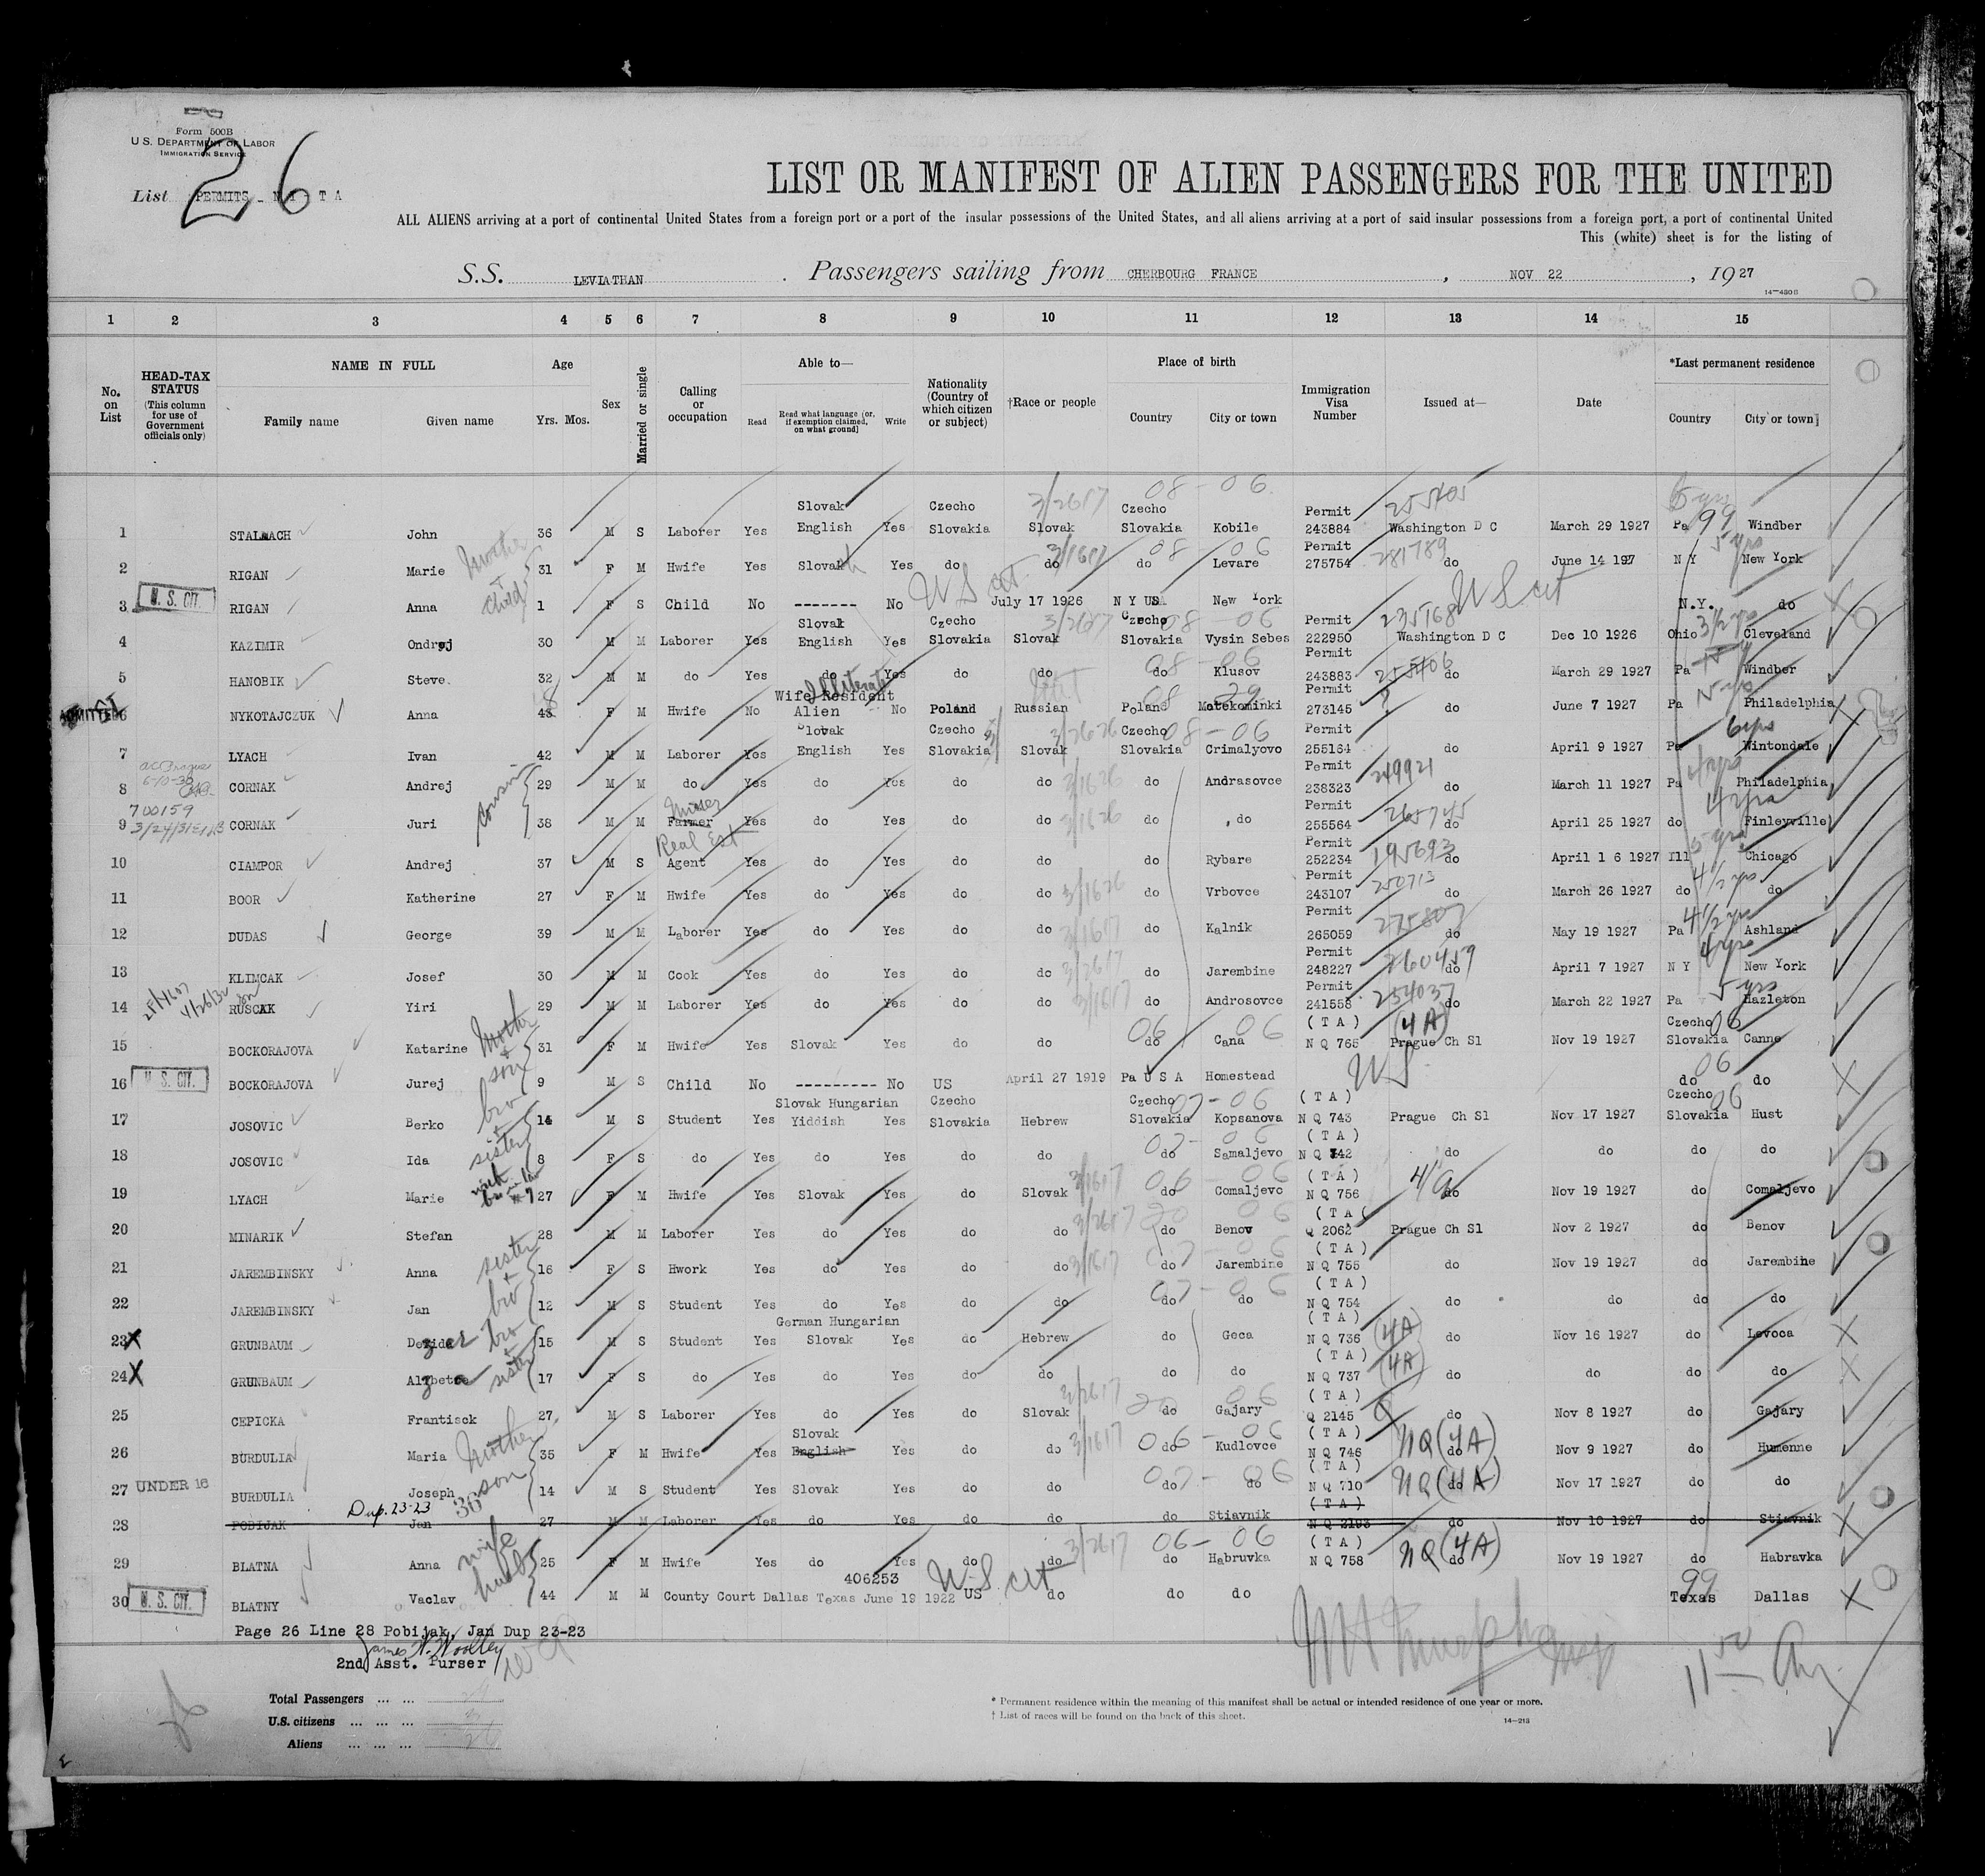 Form 500B
U.S. DEPARTMENT OF LABOR
IMMIGRATION SERVICE
26
List PERMITS - N Y - T A
LIST OR MANIFEST OF ALIEN PASSENGERS FOR THE UNITED
ALL ALIENS arriving at a port of continental United States from a foreign port or a port of the insular possessions of the United States, and all aliens arriving at a port of said insular possessions from a foreign port, a port of continental United
This (white) sheet is for the listing of
S.S. LEVIATHAN . Passengers sailing from CHERBOURG FRANCE , NOV 22 , 1927
14-430B
1 2 3 4 5 6 7 8 9 10 11 12 13 14 15
No. on List
HEAD-TAX STATUS (This column for use of Government officials only)
NAME IN FULL
Family name Given name
Age
Yrs. Mos.
Sex
Married or single
Calling or occupation
Able to—
Read Read what language [or, if exemption claimed, on what ground] Write
Nationality (Country of which citizen or subject)
†Race or people
Place of birth
Country City or town
Immigration Visa Number
Issued at—
Date
*Last permanent residence
Country City or town
1 STALMACH John 36 M S Laborer Yes Slovak English Yes Czecho Slovakia 3/2617 Slovak Czecho Slovakia 08-06 Kobile Permit 243884 255405 Washington D C March 29 1927 Pa 99 5 yrs Windber
2 RIGAN Marie Mother + child 31 F M Hwife Yes Slovak Yes do do 3/1617 do 08-06 Levare Permit 275754 281789 do June 14 1927 N Y 5 yrs New York
3 U. S. CIT. RIGAN Anna 1 F S Child No ------- No US cit July 17 1926 N Y USA New York US cit N.Y. do
4 KAZIMIR Ondrej 30 M M Laborer Yes Slovak English Yes Czecho Slovakia 3/2617 Slovak Czecho Slovakia 08-06 Vysin Sebes Permit 222950 235168 Washington D C Dec 10 1926 Ohio 3 1/2 yrs Cleveland
5 HANOBIK Steve 32 M M do Yes do Yes do do do 08-06 Klusov Permit 243883 255406 do March 29 1927 Pa Windber
ADMITTED 6 NYKOTAJCZUK Anna 43 F M Hwife No Illiterate Wife Resident Alien No Poland Russian Poland 08 29 Matekominki Permit 273145 do June 7 1927 Pa Philadelphia
7 LYACH Ivan 42 M M Laborer Yes Slovak English Yes Czecho Slovakia 3/2626 Slovak Czecho Slovakia 08-06 Crimalyovo Permit 255164 do April 9 1927 Pa 6 yrs Wintondale
8 6-10-30 CORNAK Andrej cousins 29 M M do Yes do Yes do do 3/1626 do Andrasovce Permit 238323 249921 do March 11 1927 Pa 4 yrs Philadelphia
9 700159 3/24/31 CORNAK Juri 38 M M Miner Farmer Yes do Yes do do 3/1626 do do Permit 255564 265745 do April 25 1927 do 4 yrs Finleyville
10 CIAMPOR Andrej 37 M S Real Est Agent Yes do Yes do do do Rybare Permit 252234 195693 do April 1 6 1927 Ill 5 yrs Chicago
11 BOOR Katherine 27 F M Hwife Yes do Yes do do 3/1626 do Vrbovce Permit 243107 250713 do March 26 1927 do 4 1/2 yrs do
12 DUDAS George 39 M M Laborer Yes do Yes do do 3/1617 do Kalnik Permit 265059 do May 19 1927 Pa 4 1/2 yrs Ashland
13 KLIMCAK Josef 30 M M Cook Yes do Yes do do 3/2617 do Jarembine Permit 248227 260459 do April 7 1927 N Y 4 yrs New York
14 4/26/32 RUSCAK Yiri 29 M M Laborer Yes do Yes do do 3/1617 do Androsovce Permit 241558 254037 do March 22 1927 Pa 5 yrs Hazleton
15 BOCKORAJOVA Katarine Mother + son 31 F M Hwife Yes Slovak Yes do do 06 do 06 Cana (T A) N Q 765 (4A) Prague Ch Sl Nov 19 1927 Czecho Slovakia 06 Canne
16 U. S. CIT. BOCKORAJOVA Jurej 9 M S Child No ---------- No US April 27 1919 Pa U S A Homestead US do 06 do
17 JOSOVIC Berko bro + sister 14 M S Student Yes Slovak Hungarian Yiddish Yes Czecho Slovakia Hebrew Czecho Slovakia 07-06 Kopsanova (T A) N Q 743 Prague Ch Sl Nov 17 1927 Czecho Slovakia 06 Hust
18 JOSOVIC Ida 8 F S do Yes do Yes do do do 07-06 Samaljevo (T A) N Q 742 do do do do
19 LYACH Marie with bro in law #7 27 F M Hwife Yes Slovak Yes do Slovak 3/1617 do 06-06 Comaljevo (T A) N Q 756 4/a do Nov 19 1927 do Comaljevo
20 MINARIK Stefan 28 M M Laborer Yes do Yes do do 3/2617 do 20 06 Benov (T A( Q 2062 Prague Ch Sl Nov 2 1927 do Benov
21 JAREMBINSKY Anna sister + bro 16 F S Hwork Yes do Yes do do 3/1617 do 07-06 Jarembine (T A) N Q 755 do Nov 19 1927 do Jarembine
22 JAREMBINSKY Jan 12 M S Student Yes do Yes do do do 07-06 do (T A) N Q 754 do do do do
23 X GRUNBAUM Dezider bro + sister 15 M S Student Yes German Hungarian Slovak Yes do Hebrew do Geca (T A) N Q 736 (4A) do Nov 16 1927 do Levoca
24 X GRUNBAUM Alzbeta 17 F S do Yes do Yes do do do do (T A) N Q 737 (4A) do do do do
25 CEPICKA Frantisck 27 M S Laborer Yes do Yes do Slovak 3/2617 do 20 06 Gajary (T A) Q 2145 Q do Nov 8 1927 do Gajary
26 BURDULIA Maria Mother son 35 F M Hwife Yes Slovak English Yes do do 3/1617 do 06-06 Kudlovce (T A) N Q 746 NQ (4A) do Nov 9 1927 do Humenne
27 UNDER 16 BURDULIA Joseph 14 M S Student Yes Slovak Yes do do do 07-06 do (T A) N Q 710 NQ (4A) do Nov 17 1927 do do
28 POBIJAK Dup. 23-23 Jan 27 M M Laborer Yes do Yes do do do Stiavnik (T A) N Q 2193 do Nov 10 1927 do Stiavnik
29 BLATNA Anna wife husb 25 F M Hwife Yes do Yes do do 3/2617 do 06-06 Habruvka (T A) N Q 758 NQ (4A) do Nov 19 1927 do Habravka
30 U. S. CIT. BLATNY Vaclav 44 M M 406253 County Court Dallas Texas June 19 1922 US US cit do do do 99 Texas Dallas
Page 26 Line 28 Pobijak, Jan Dup 23-23
James W. Woolley
2nd Asst. Purser
Total Passengers ... ...
U.S. citizens ... ... ...
Aliens ... ... ...
* Permanent residence within the meaning of this manifest shall be actual or intended residence of one year or more.
† List of races will be found on the back of this sheet.
14-213